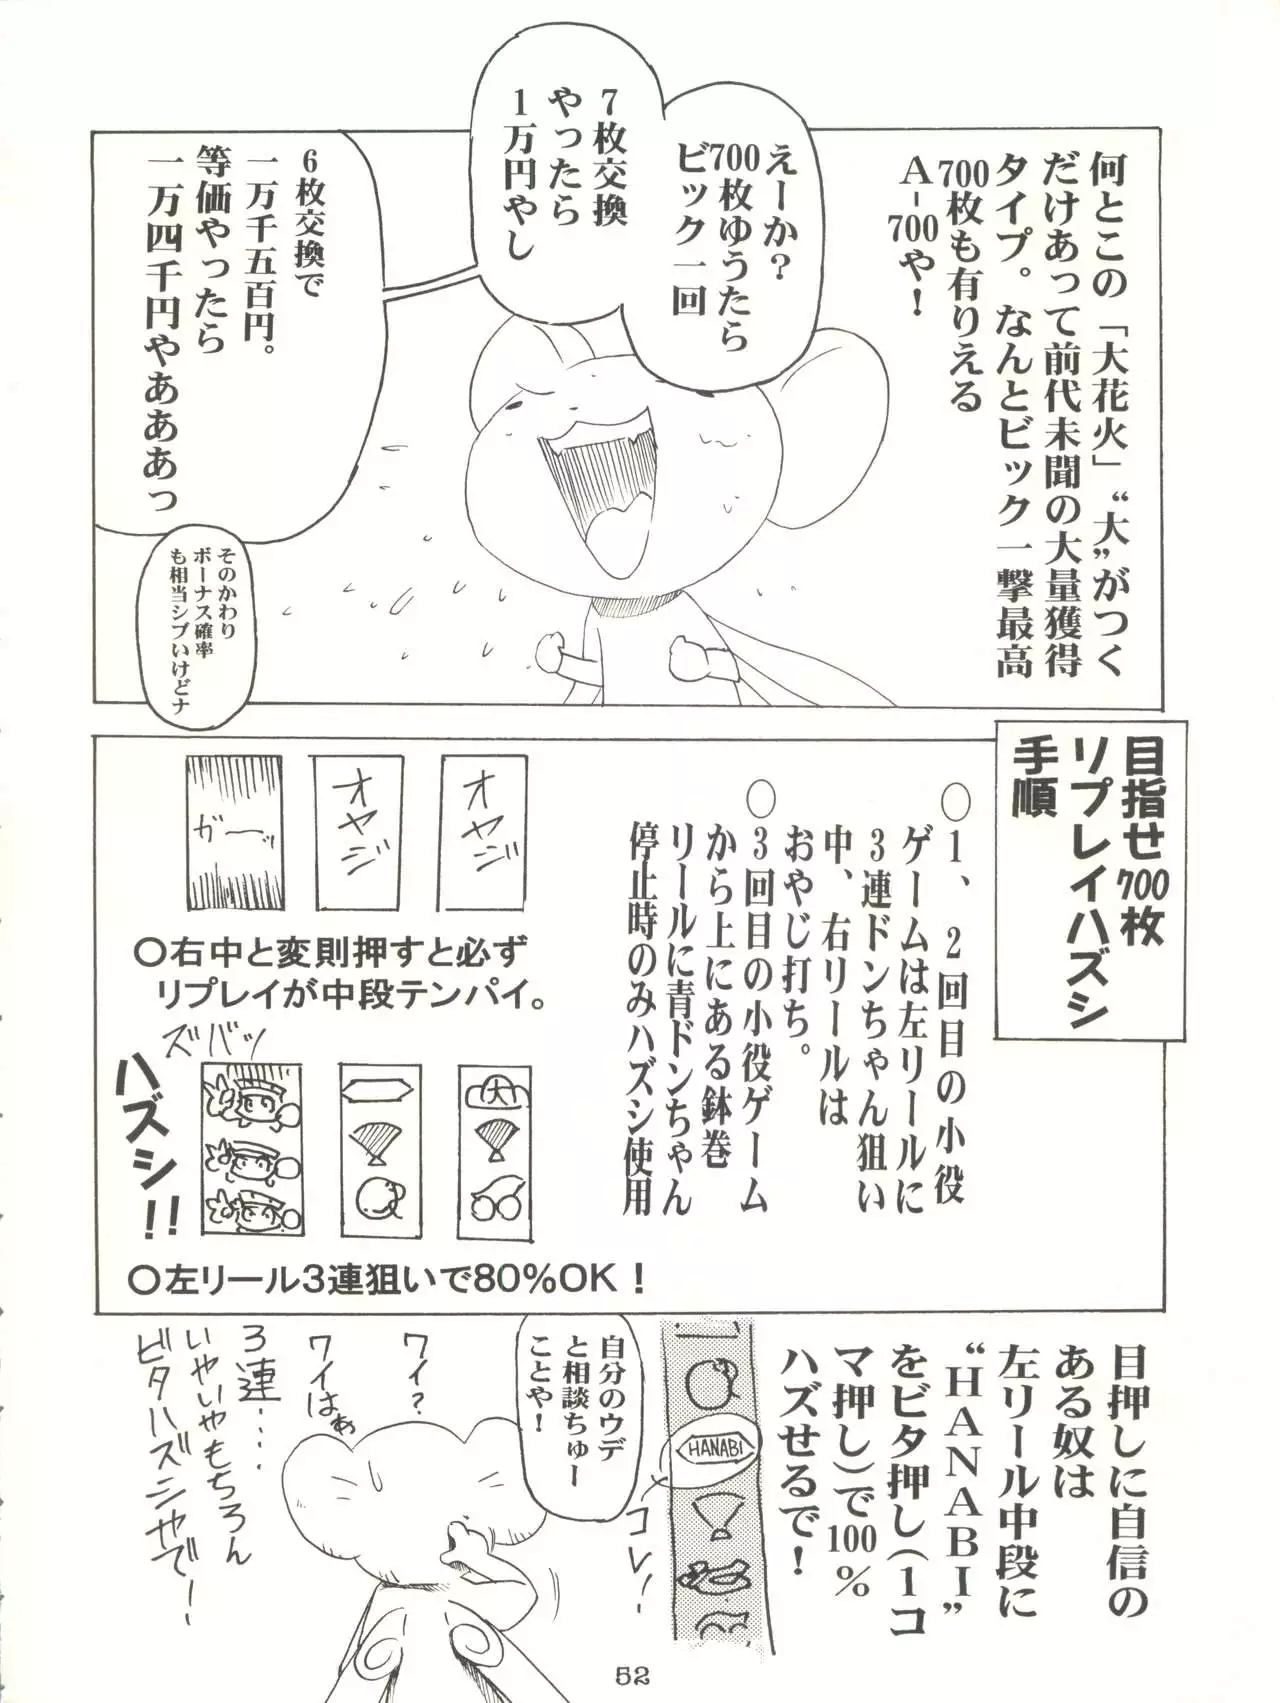 何とこの「大花火」“大”がつく
だけあって前代未聞の大量獲得
タイプ。なんとビック一撃最高
700枚も有りえる
A-700や！
えーか？
700枚ゆうたら
ビック一回
7枚交換
やったら
1万円やし
6枚交換で
一万千五百円。
等価やったら
一万四千円やあああっ
そのかわり
ボーナス確率
も相当シブいけどナ
目指せ700枚
リプレイハズシ
手順
○1、2回目の小役
ゲームは左リールに
3連ドンちゃん狙い
中、右リールは
おやじ打ち。
○3回目の小役ゲーム
から上にある鉢巻
リールに青ドンちゃん
停止時のみハズシ使用
オヤジ
オヤジ
ガーッ
○右中と変則押すと必ず
リプレイが中段テンパイ。
ズバッ
ハズシ!!
大
○左リール3連狙いで80%OK！
目押しに自信の
ある奴は
左リール中段に
“HANABI”
をビタ押し(1コ
マ押し)で100%
ハズせるで！
HANABI
コレ！
自分のウデ
と相談ちゅー
ことや！
ワイ？
ワイはぁ
3連‥‥
いやいやもちろん
ビタハズシやで！
52